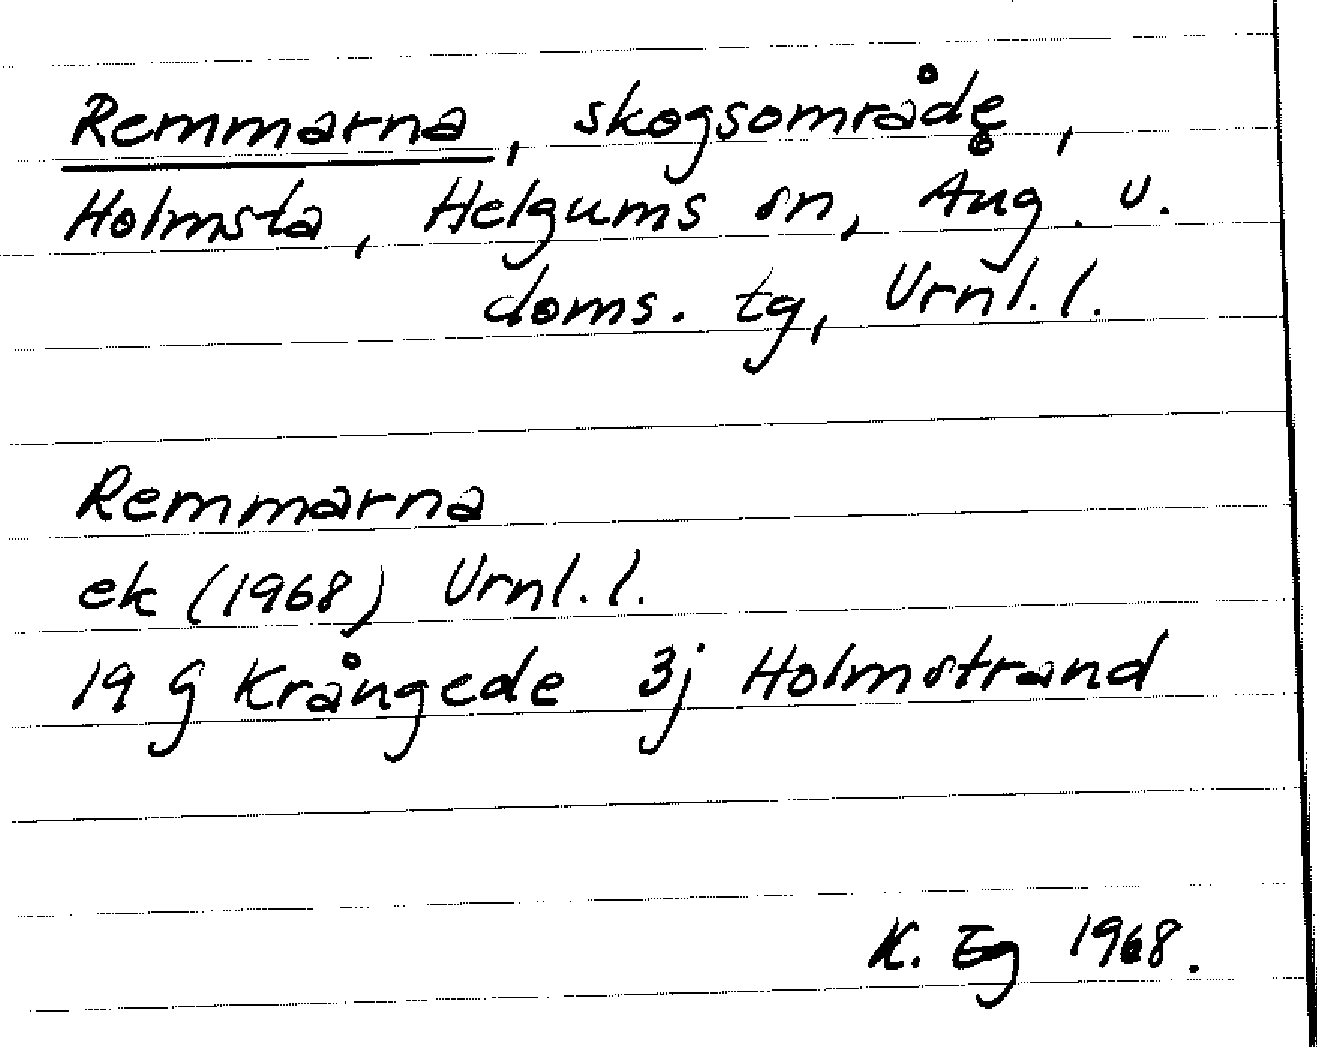 Remmarna, skogsområde,
Holmsta, Helgums sn, Ång. v.
doms. tg, Vrnl. l.
Remmarna
ek (1968) Vrnl. l.
19 G Krångede 3j Holmstrand
K. Eg 1968.